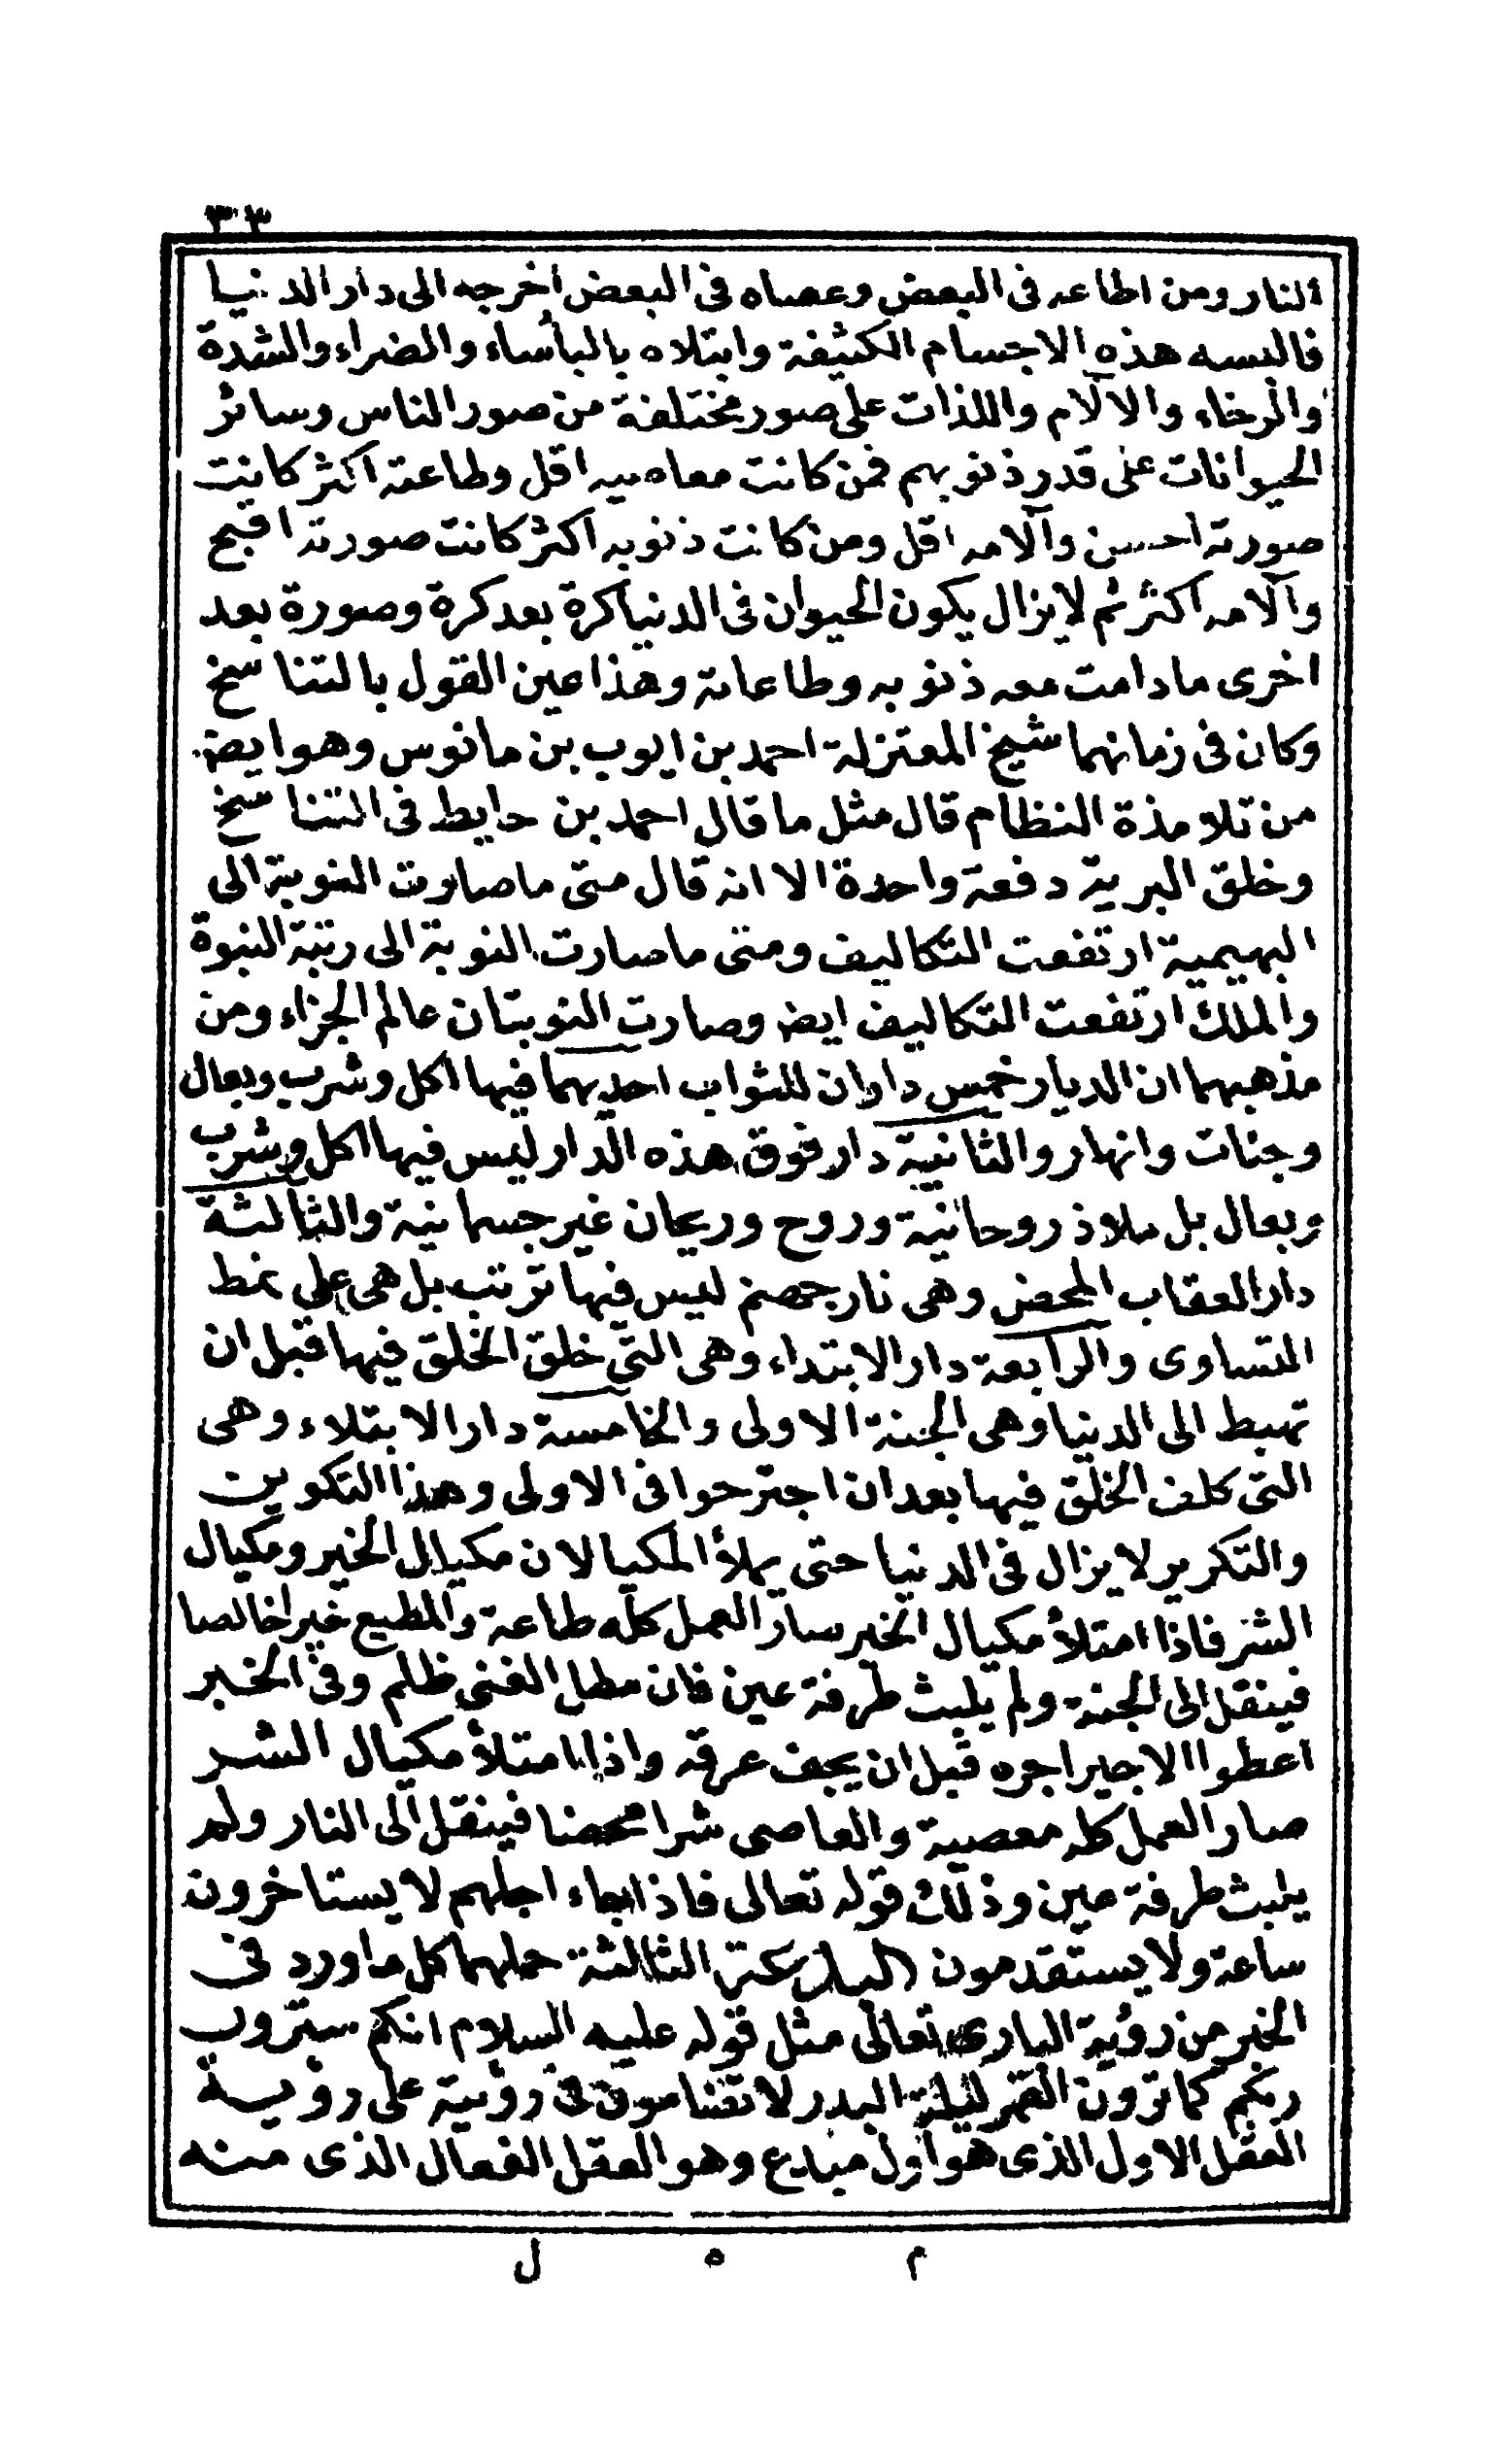 ٣٣
النار ومن اطاعه فى البعض وعصاه فى البعض اخرجه الى دار الدنيا
فالبسه هذه الاجسام الكثيفة وابتلاه بالبأساء والضراء والشدة
والرخاء والآلام واللذات على صور مختلفة من صور الناس وسائر
الحيوانات على قدر ذنوبهم فمن كانت معاصيه اقل وطاعته اكثر كانت
صورته احسن وآلامه اقل ومن كانت ذنوبه اكثر كانت صورته اقبح
وآلامه اكثر ثم لا يزال يكون الحيوان فى الدنيا كرة بعد كرة وصورة بعد
اخرى ما دامت معه ذنوبه وطاعاته وهذا عين القول بالتناسخ
وكان فى زمانهما شيخ المعتزلة احمد بن ايوب بن مانوس وهو ايضا
من تلامذة النظام قال مثل ما قال احمد بن حايط فى التناسخ
وخلق البرية دفعة واحدة الا انه قال متى ما صارت النوبة الى
البهيمية ارتفعت التكاليف ومتى ما صارت النوبة الى رتبة النبوة
والملك ارتفعت التكاليف ايض وصارت النوبتان عالم الجزاء ومن
مذهبهما ان الديار خمس داران للثواب احديهما فيها اكل وشرب وبعال
وجنات وانهار والثانية دار فوق هذه الدار ليس فيها اكل وشرب
وبعال بل ملاذ روحانية وروح وريحان غير جسمانية والثالثة
دار العقاب المحض وهى نار جهنم ليس فيها ترتب بل هى على نمط
التساوى والرابعة دار الابتداء وهى التى خلق الخلق فيها قبل ان
تهبط الى الدنيا وهى الجنة الاولى والخامسة دار الابتلاء وهى
التى كلف الخلق فيها بعد ان اجترحوا فى الاولى وهذا التكوين
والتكرير لا يزال فى الدنيا حتى يملأ المكيالان مكيال الخير ومكيال
الشر فاذا امتلأ مكيال الخير صار العمل كله طاعة والمطيع خيرا خالصا
فينقل الى الجنة ولم يلبث طرفة عين فان مطل الغنى ظلم وفى الخبر
اعطوا الاجير اجره قبل ان يجف عرقه واذا امتلأ مكيال الشر
صار العمل كله معصية والعاصى شرا محضا فينقل الى النار ولم
يلبث طرفة عين وذلك قوله تعالى فاذا جاء اجلهم لا يستاخرون
ساعة ولا يستقدمون الثالثة حملهما كل ما ورد فى
الخبر من رؤية البارى تعالى مثل قوله عليه السلام انكم سترون
ربكم كما ترون القمر ليلة البدر لا تضامون فى رؤيته على رؤية
العقل الاول الذى هو اول مبدع وهو العقل الفعال الذى منه
م ٥ ل